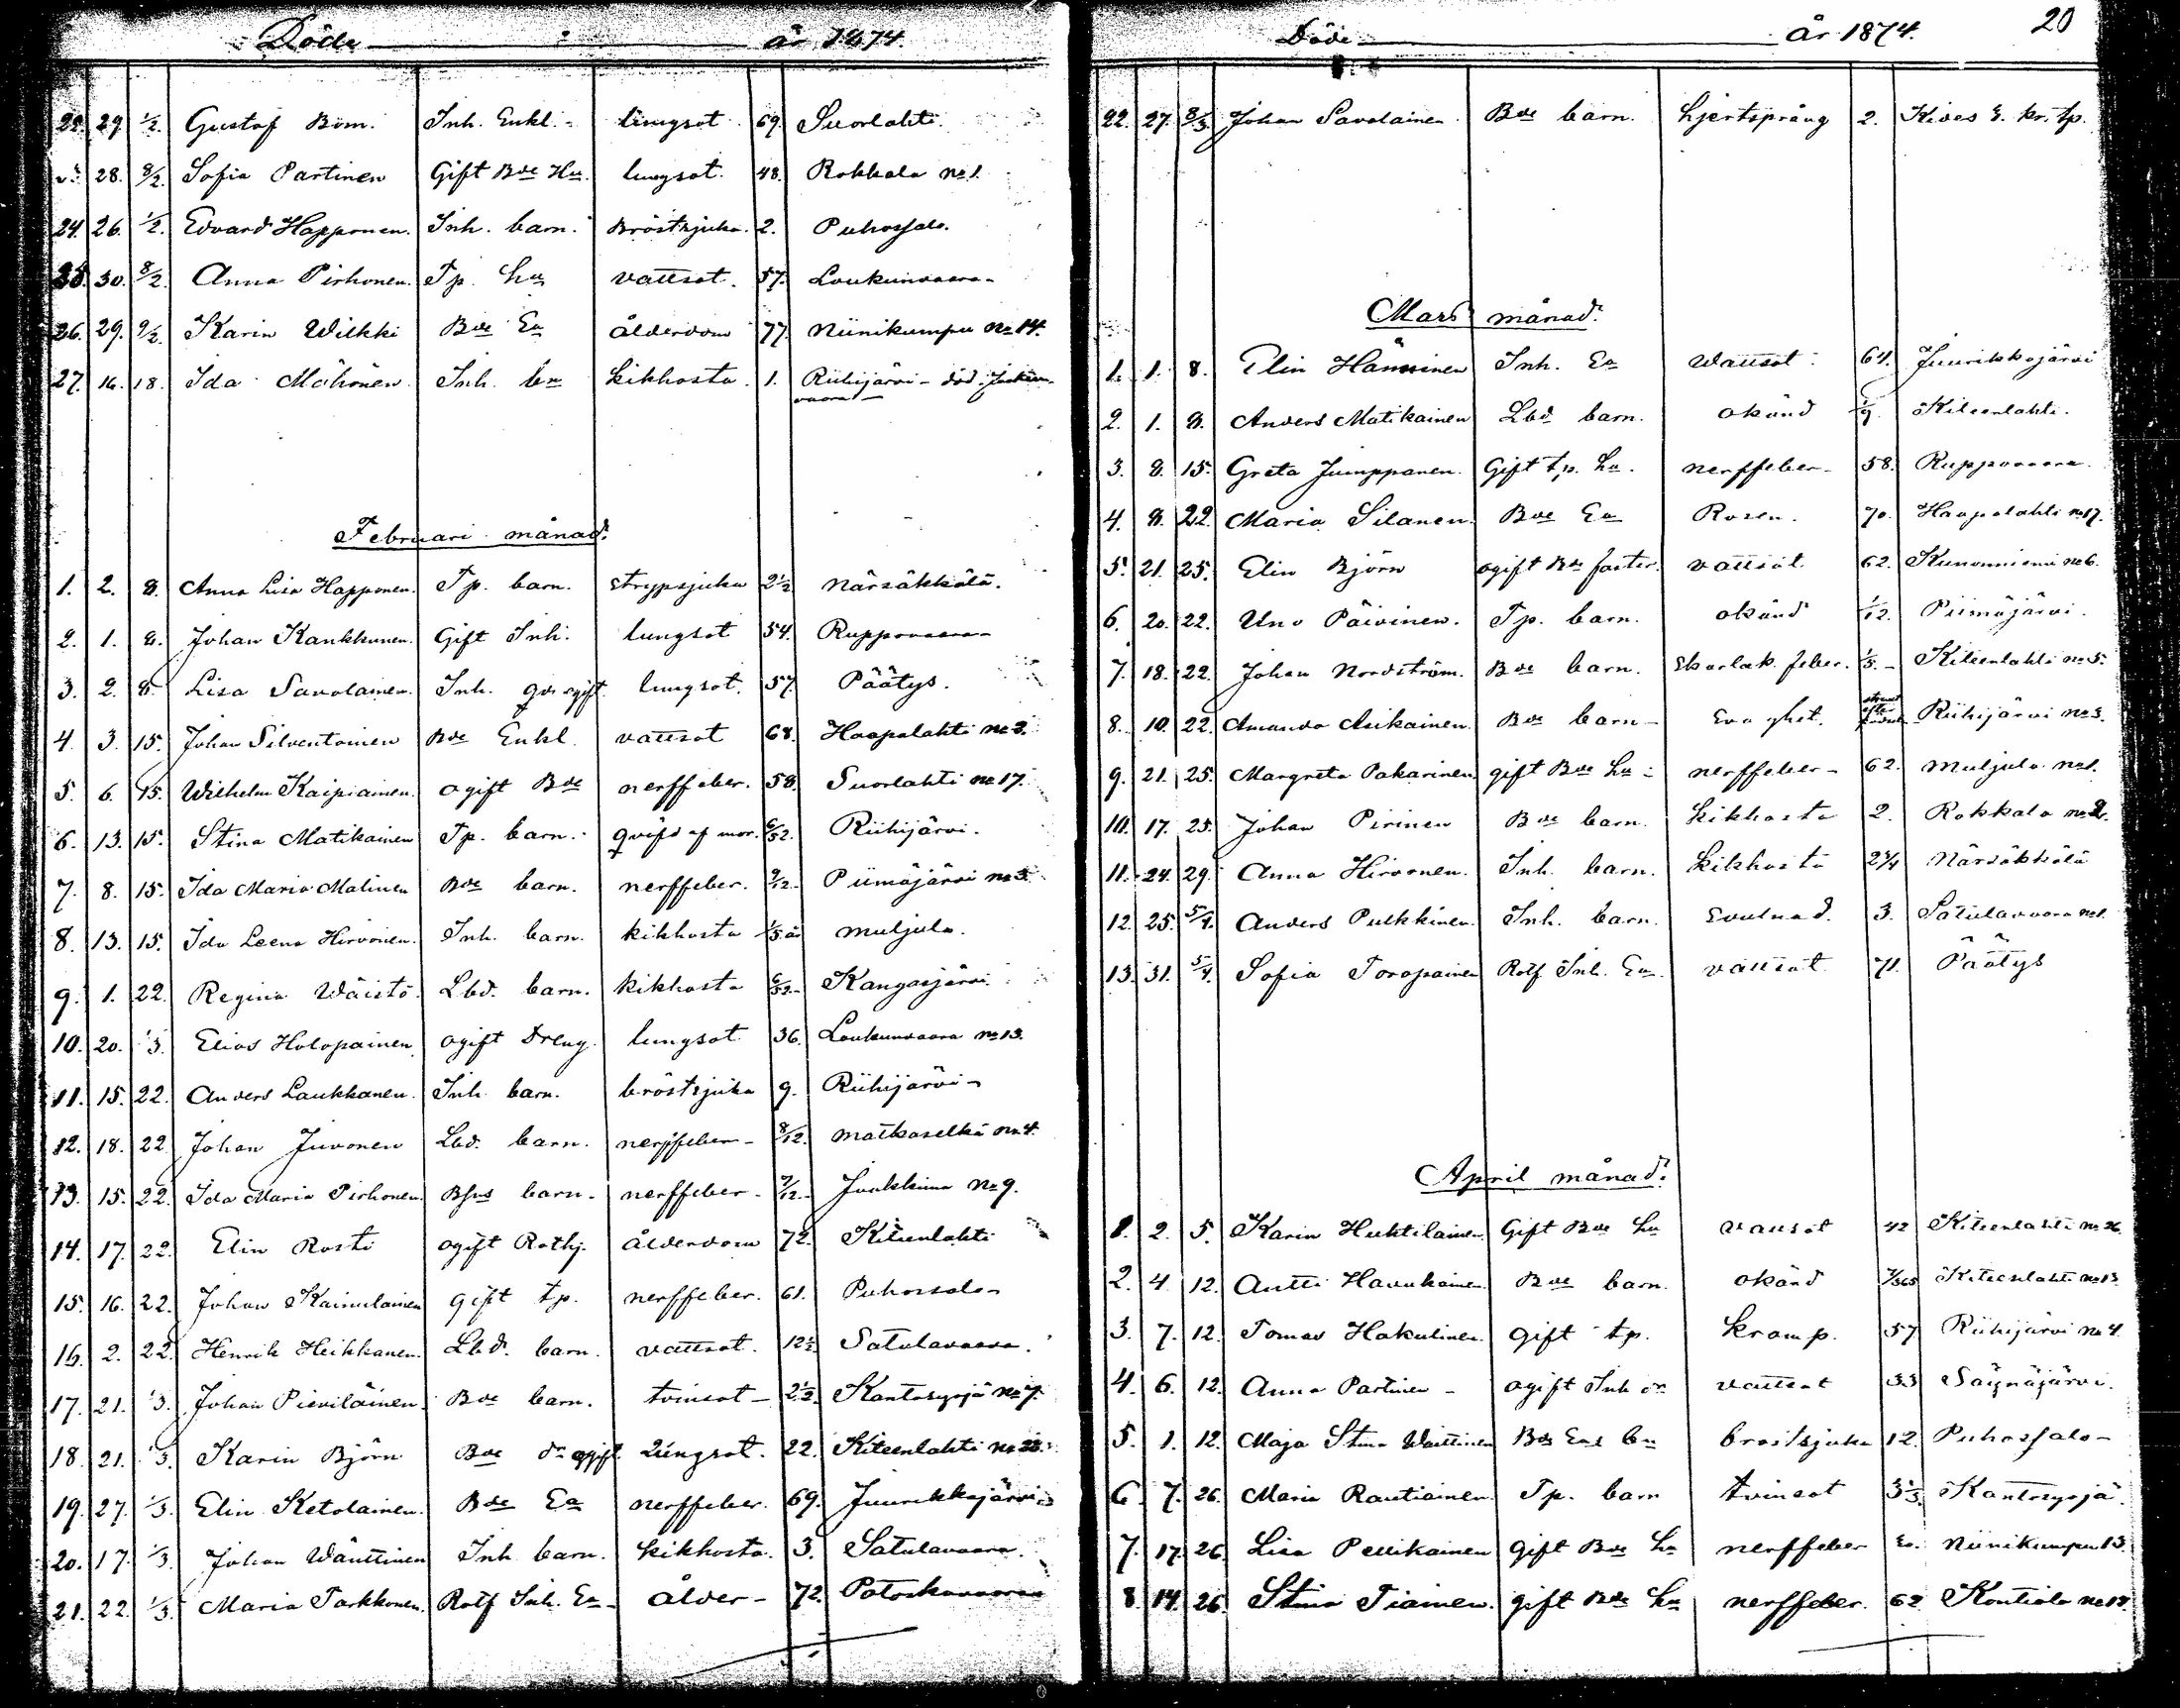 Döde år 1874.
29. 1/2. Gustaf Böm. Inh. Enkl. lungsot 69. Suorlahti.
28. 8/2. Sofia Partinen Gift Bde Hu. lungsot. 48. Rokkala no 1.
24. 26. 1/2. Edvard Happonen. Inh. barn. Bröstsjuka. 2. Puhossalo.
25. 30. 8/2. Anna Pirhonen. Tp. hu vattsot. 57. Loukunvaara
26. 29. 9/2. Karin Wilkki Bde Ea ålderdom 77. Niinikumpu no 14.
27. 16. 18. Ida Möhönen Inh. bn kikhosta. 1. Riihijärvi - död.
vaara
Februari månad.
1. 2. 8. Anna Lisa Happonen. Tp. barn. strypsjuka 2 1/2 Närsäkkälä.
2. 1. 8. Johan Kankkunen. Gift Inh. lungsot 54. Ruppovaara
3. 2. 8. Lisa Savolainen. Inh. ogift lungsot. 57. Päätys.
4. 3. 15. Johan Silventoinen Bde Enkl. vattsot 68. Haapalahti no 3.
5. 6. 15. Wilhelm Kaipiainen. ogift Bde nerffeber. 58. Suorlahti no 17.
6. 13. 15. Stina Matikainen Tp. barn. qväfd af mor. 6/52. Riihijärvi.
7. 8. 15. Ida Maria Malinen Bde barn. nerffeber. Piimäjärvi no 3.
8. 13. 15. Ida Leena Hirvonen. Inh. barn. kikhosta 1/3 år Muljula.
9. 1. 22. Regina Wäistö. Lbd. barn. kikhosta 6/52. Kangasjärvi.
10. 20. 1/3. Elias Holopainen ogift Dreng. lungsot 36. Loukunvaara no 13.
11. 15. 22. Anders Laukkanen. Inh. barn. bröstsjuka 9. Riihijärvi
12. 18. 22 Johan Juvonen Lbd. barn. nerffeber 8/12. Matkaselkä no 4.
13. 15. 22. Ida Maria Pirhonen Bfvs barn. nerffeber 7/12. Juakkima No 9.
14. 17. 22. Elin Rosti ogift Rothj. ålderdom 72. Kiteenlahti
15. 16. 22. Johan Kainulainen gift tp. nerffeber. 61. Puhossalo
16. 2. 22. Henrik Heikkanen. Lbd. barn. vattsot. 12 1/2 Satulavaara.
17. 21. 1/3. Johan Pieviläinen. Bde barn. tvinsot 2 1/2. Kantosyrjä no 7.
18. 21. 1/3. Karin Björn Bde dr ogift Lungsot. 22. Kiteenlahti no 28.
19. 27. 1/3. Elin Ketolainen. Bde Ea nerffeber. 69. Juurikkajärvi
20. 17. 1/3. Johan Wänttinen Inh. barn. kikhosta. 3. Satulavaara.
21. 22. 1/3. Maria Tarkkonen. Rotf Inh. Ea ålder 72. Potoskavaara
Döde år 1874. 20
22. 27. 8/3. Johan Savolainen Bde barn. hjertsprång 2. Kides
Mars månad.
1. 1. 8. Elin Hänninen Inh. Ea Wattsot 64. Juurikkajärvi
2. 1. 8. Anders Matikainen Lbd barn. okänd Kiteenlahti.
3. 8. 15. Greta Jumppanen. Gift tp. hu. nerffeber 58. Ruppovaara.
4. 8. 22. Maria Silanen. Bde Ea Rosen. 70. Haapalahti no 17.
5. 21. 25. Elin Björn ogift Bde faster. vattsot 62. Kunonniemi no 6.
6. 20. 22. Uno Päivinen. Tp. barn. okänd 1/12. Piimäjärvi.
7. 18. 22. Johan Nordström. Bde barn. Skarlak. feber. 1/3. Kiteenlahti no 5.
8. 10. 22. Amanda Asikainen. Bde barn Svaghet. Riihijärvi no 3.
9. 21. 25. Margreta Pakarinen gift Bde hu nerffeber 62. Muljula no 1.
10. 17. 25. Johan Pirinen Bde barn. kikhosta 2. Rokkala no 2.
11. 24. 29. Anna Hirvonen. Inh. barn. kikhosta 2 1/4 Närsäkkälä
12. 25. 5/4. Anders Pulkkinen. Inh. barn. Svulnad. 3. Satulavaara no 1.
13. 31. 5/4. Sofia Toropainen Rotf Inh. Ea. vattsot 71. Päätys
April månad.
1. 2. 5. Karin Huhtilainen. Gift Bde hu vattsot 42 Kiteenlahti no 26.
2. 4. 12. Antti Havukainen. Bde barn. okänd 7/365 Kiteenlahti no 13.
3. 7. 12. Tomas Hakulinen. gift tp. kramp. 57 Riihijärvi no 4.
4. 6. 12. Anna Partinen ogift Inh dr vattsot 33 Säynäjärvi.
5. 1. 12. Maja Stina Wänttinen Bde bn bröstsjuka 12. Puhossalo
6. 7. 26. Maria Rautiainen. Tp. barn tvinsot 3 1/3. Kantosyrjä.
7. 17. 26. Lisa Pellikainen gift Bde hu nerffeber Niinikumpu 13.
8. 14. 26. Stina Tiainen. gift Bde hu nerffeber. 62 Kontiola no 18.